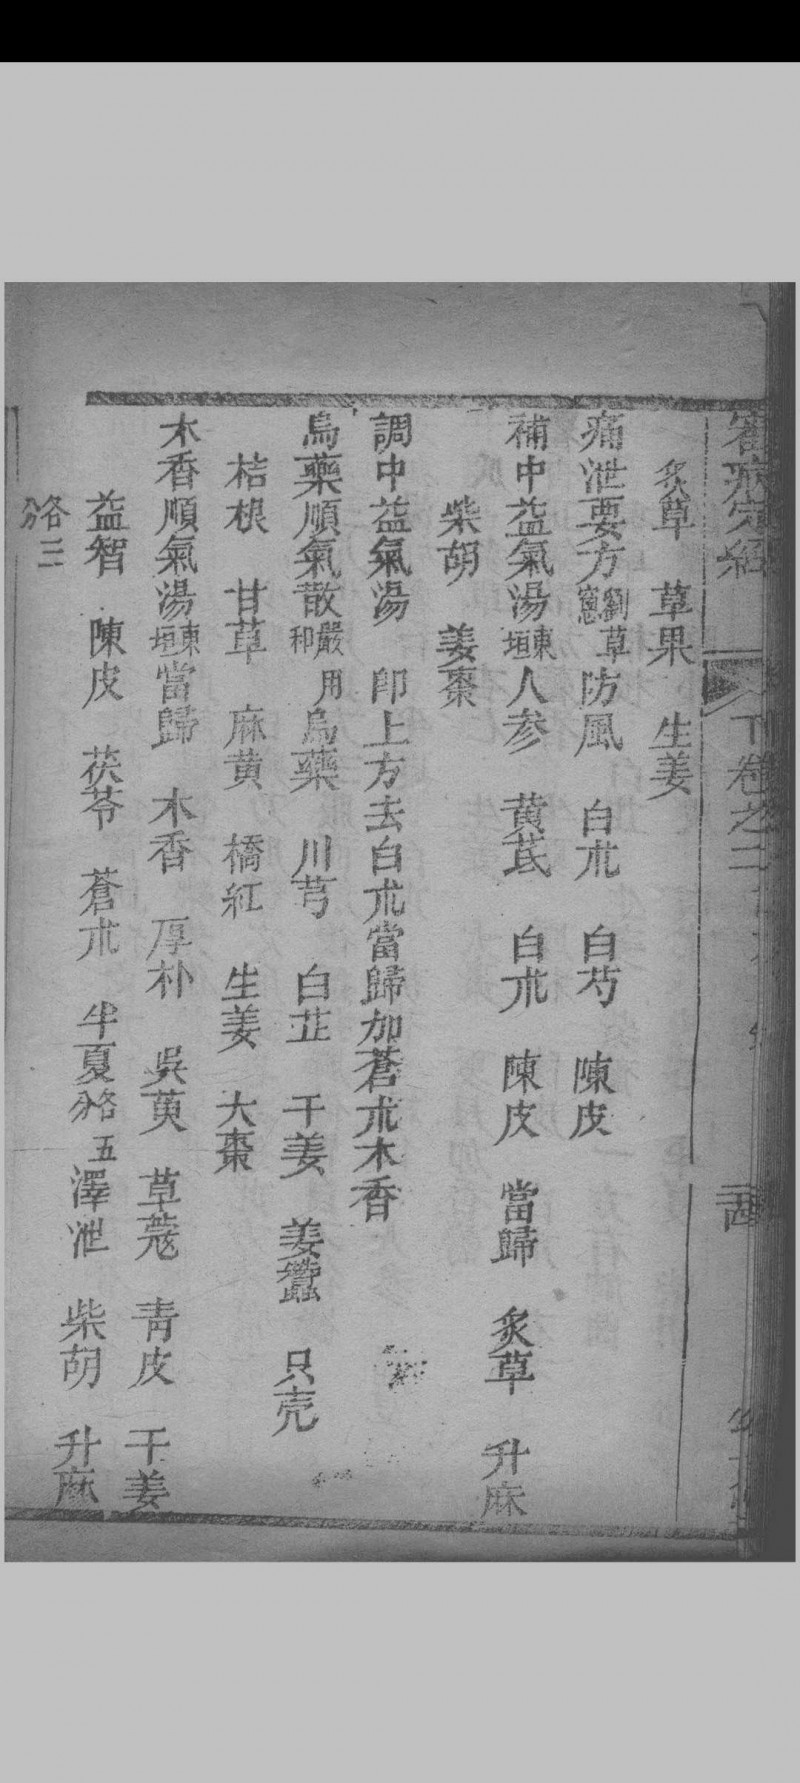 下卷之二
炙草 草果 生姜
痛泄要方 劉草窻 防風 白朮 白芍 陳皮
補中益氣湯 東垣 人參 黄芪 白朮 陳皮 當歸 炙草 升麻
柴胡 姜棗
調中益氣湯 即上方去白朮當歸加蒼朮木香
烏藥順氣散 嚴用和 烏藥 川芎 白芷 干姜 姜蠶 只壳
桔梗 甘草 麻黄 橘紅 生姜 大棗
木香順氣湯 東垣 當歸 木香 厚朴 吳萸 草蔻 青皮 干姜
益智 陳皮 茯苓 蒼朮 半夏 各五分 澤泄 柴胡 升麻
各三分